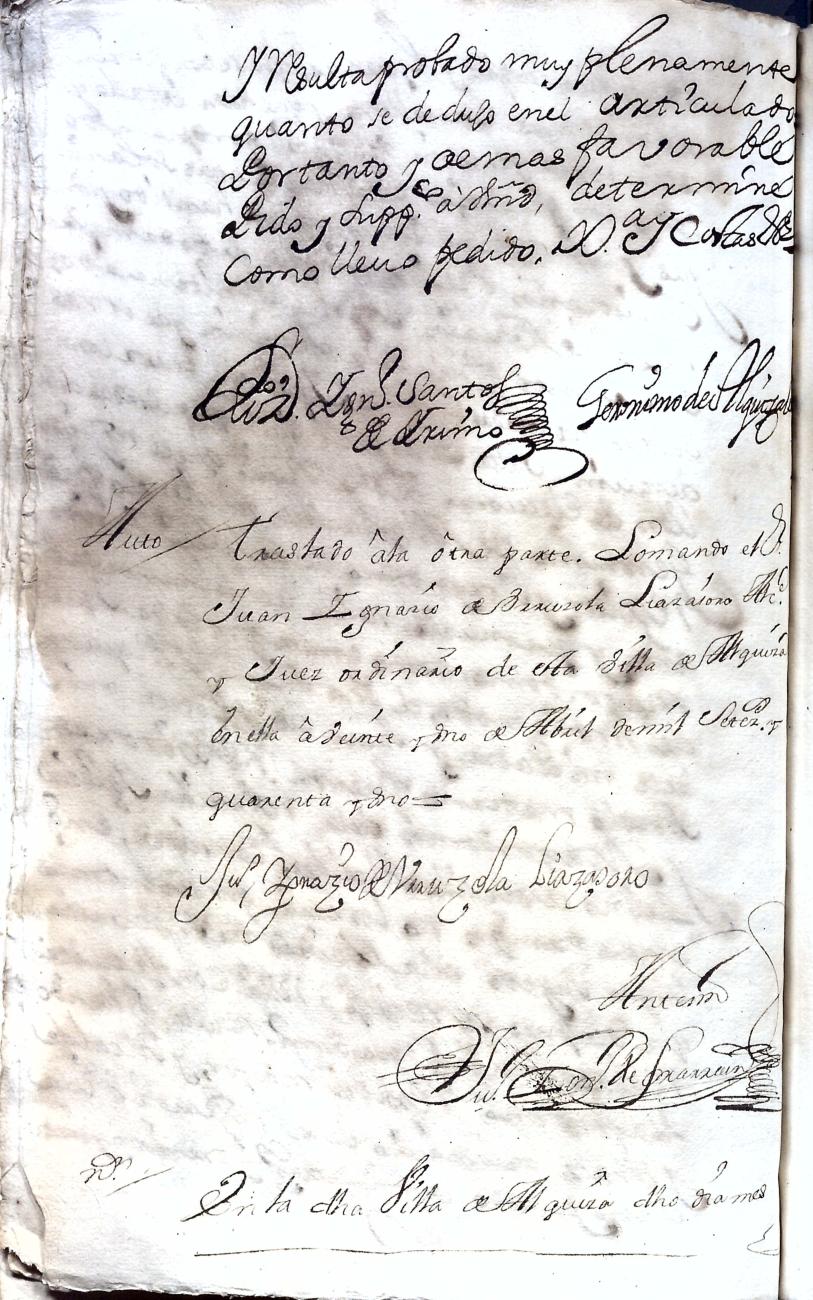 Y Resulta probado muy plenamente
quanto se dedujo en el articulado
Portanto y demas favorable
Pido y Supp.co à Vm̃d, determine
Como llevo pedido, ay Costas &.
Liz.do Ign.o Santos
de
Geronimo de Alquizalete
Auto
traslado âla ôtra parte. Lo mando el S.r
Juan Ignacio de Veruzola Liazasoro Alc.e
y Juez ordinario de esta Villa de Alquiza
en ella â Veinte y Vno de Abril demil Setez.s y
quarenta y Vno =
Ju.n Ygnazio de Veruzola Liazasoro
Antemi
Ju.n de
n.on
En la dha Villa de Alquiza dho dia mes